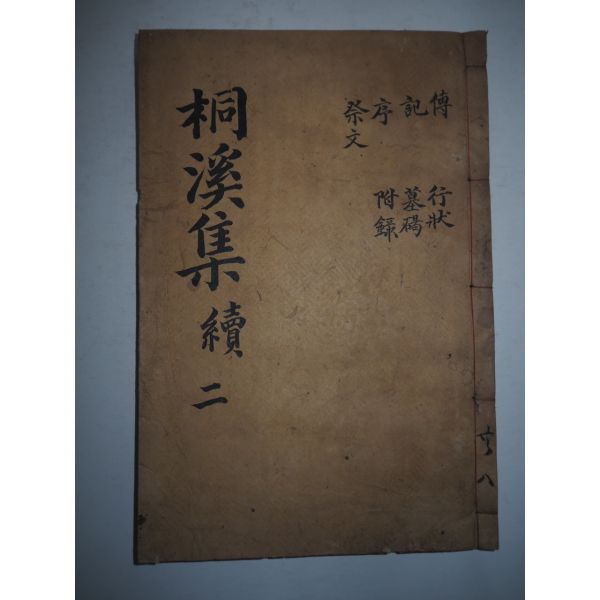 共八
傳 行狀
記 墓碣
序 附錄
祭文
桐溪集 續 二